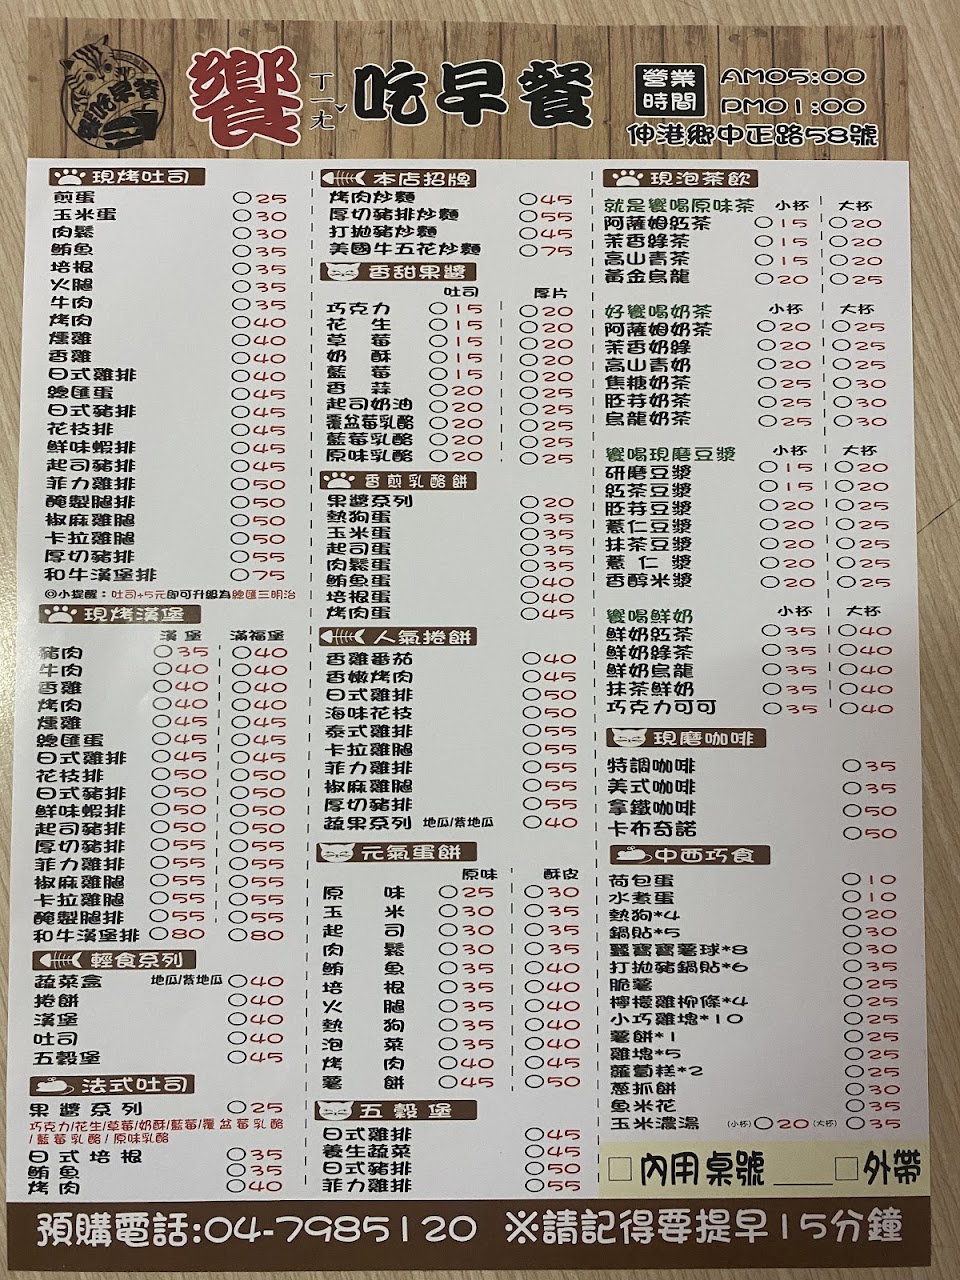 饗ㄒㄧㄤˇ吃早餐
營業時間 AM05:00
PM01:00
伸港鄉中正路58號
現烤吐司
煎蛋 25
玉米蛋 30
肉鬆 30
鮪魚 35
培根 35
火腿 35
牛肉 35
烤肉 40
燻雞 40
香雞 40
日式雞排 40
總匯蛋 45
日式豬排 45
花枝排 45
鮮味蝦排 45
起司豬排 45
菲力雞排 50
醃製腿排 50
椒麻雞腿 50
卡拉雞腿 50
厚切豬排 55
和牛漢堡排 75
◎小提醒：吐司+5元即可升級為總匯三明治
現烤漢堡
漢堡 滿福堡
豬肉 35 40
牛肉 40 40
香雞 40 40
烤肉 40 40
燻雞 45 45
總匯蛋 45 45
日式雞排 45 45
花枝排 50 50
日式豬排 50 50
鮮味蝦排 50 50
起司豬排 50 50
厚切豬排 55 55
菲力雞排 55 55
椒麻雞腿 55 55
卡拉雞腿 55 55
醃製腿排 55 55
和牛漢堡排 80 80
輕食系列
蔬菜盒 地瓜/紫地瓜 40
捲餅 40
漢堡 40
吐司 40
五穀堡 45
法式吐司
果醬系列 25
巧克力/花生/草莓/奶酥/藍莓/覆盆莓乳酪
/藍莓乳酪/原味乳酪
日式培根 35
鮪魚 35
烤肉 40
本店招牌
烤肉炒麵 45
厚切豬排炒麵 55
打拋豬炒麵 45
美國牛五花炒麵 75
香甜果醬
吐司 厚片
巧克力 15 20
花生 15 20
草莓 15 20
奶酥 15 20
藍莓 15 20
香蒜 20 25
起司奶油 20 25
覆盆莓乳酪 20 25
藍莓乳酪 20 25
原味乳酪 20 25
香煎乳酪餅
果醬系列 20
熱狗蛋 35
玉米蛋 35
起司蛋 35
肉鬆蛋 35
鮪魚蛋 40
培根蛋 40
烤肉蛋 45
人氣捲餅
香雞番茄 40
香嫩烤肉 45
日式雞排 50
海味花枝 50
泰式雞排 55
卡拉雞腿 55
菲力雞排 55
椒麻雞腿 55
厚切豬排 55
蔬果系列 地瓜/紫地瓜 40
元氣蛋餅
原味 酥皮
原味 25 30
玉米 30 35
起司 30 35
肉鬆 30 35
鮪魚 35 40
培根 35 40
火腿 35 40
熱狗 35 40
泡菜 35 40
烤肉 40 45
薯餅 45 50
五穀堡
日式雞排 45
養生蔬菜 45
日式豬排 50
菲力雞排 55
現泡茶飲
就是饗喝原味茶 小杯 大杯
阿薩姆紅茶 15 20
茉香綠茶 15 20
高山青茶 15 20
黃金烏龍 20 25
好饗喝奶茶 小杯 大杯
阿薩姆奶茶 20 25
茉香奶綠 20 25
高山青奶 20 25
焦糖奶茶 25 30
胚芽奶茶 25 30
烏龍奶茶 25 30
饗喝現磨豆漿 小杯 大杯
研磨豆漿 15 20
紅茶豆漿 15 20
胚芽豆漿 20 25
薏仁豆漿 20 25
抹茶豆漿 20 25
薏仁漿 20 25
香醇米漿 20 25
饗喝鮮奶 小杯 大杯
鮮奶紅茶 35 40
鮮奶綠茶 35 40
鮮奶烏龍 35 40
抹茶鮮奶 35 40
巧克力可可 35 40
現磨咖啡
特調咖啡 35
美式咖啡 35
拿鐵咖啡 50
卡布奇諾 50
中西巧食
荷包蛋 10
水煮蛋 10
熱狗*4 20
鍋貼*5 30
蠶寶寶薯球*8 30
打拋豬鍋貼*6 35
脆薯 25
檸檬雞柳條*4 25
小巧雞塊*10 25
薯餅*1 25
雞塊*5 25
蘿蔔糕*2 25
蔥抓餅 30
魚米花 35
玉米濃湯 (小杯) 20 (大杯) 35
□內用桌號____□外帶
預購電話:04-7985120 ※請記得要提早15分鐘